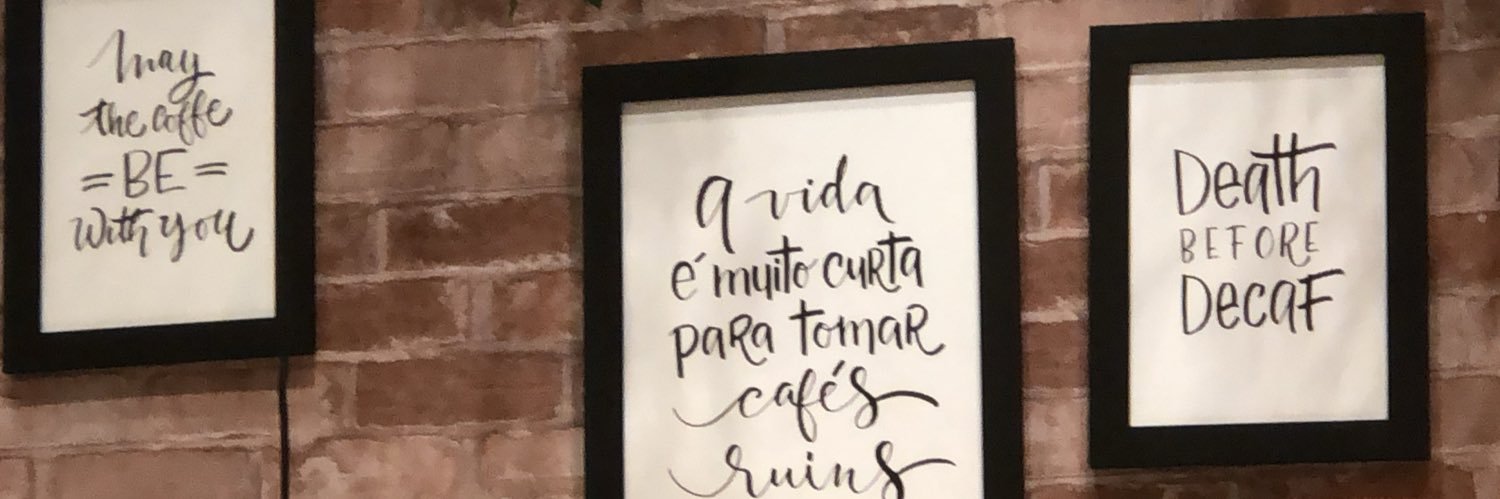 May
the coffe
=BE=
with you
A vida
é muito curta
para tomar
cafés
ruins
Death
BEFORE
Decaf